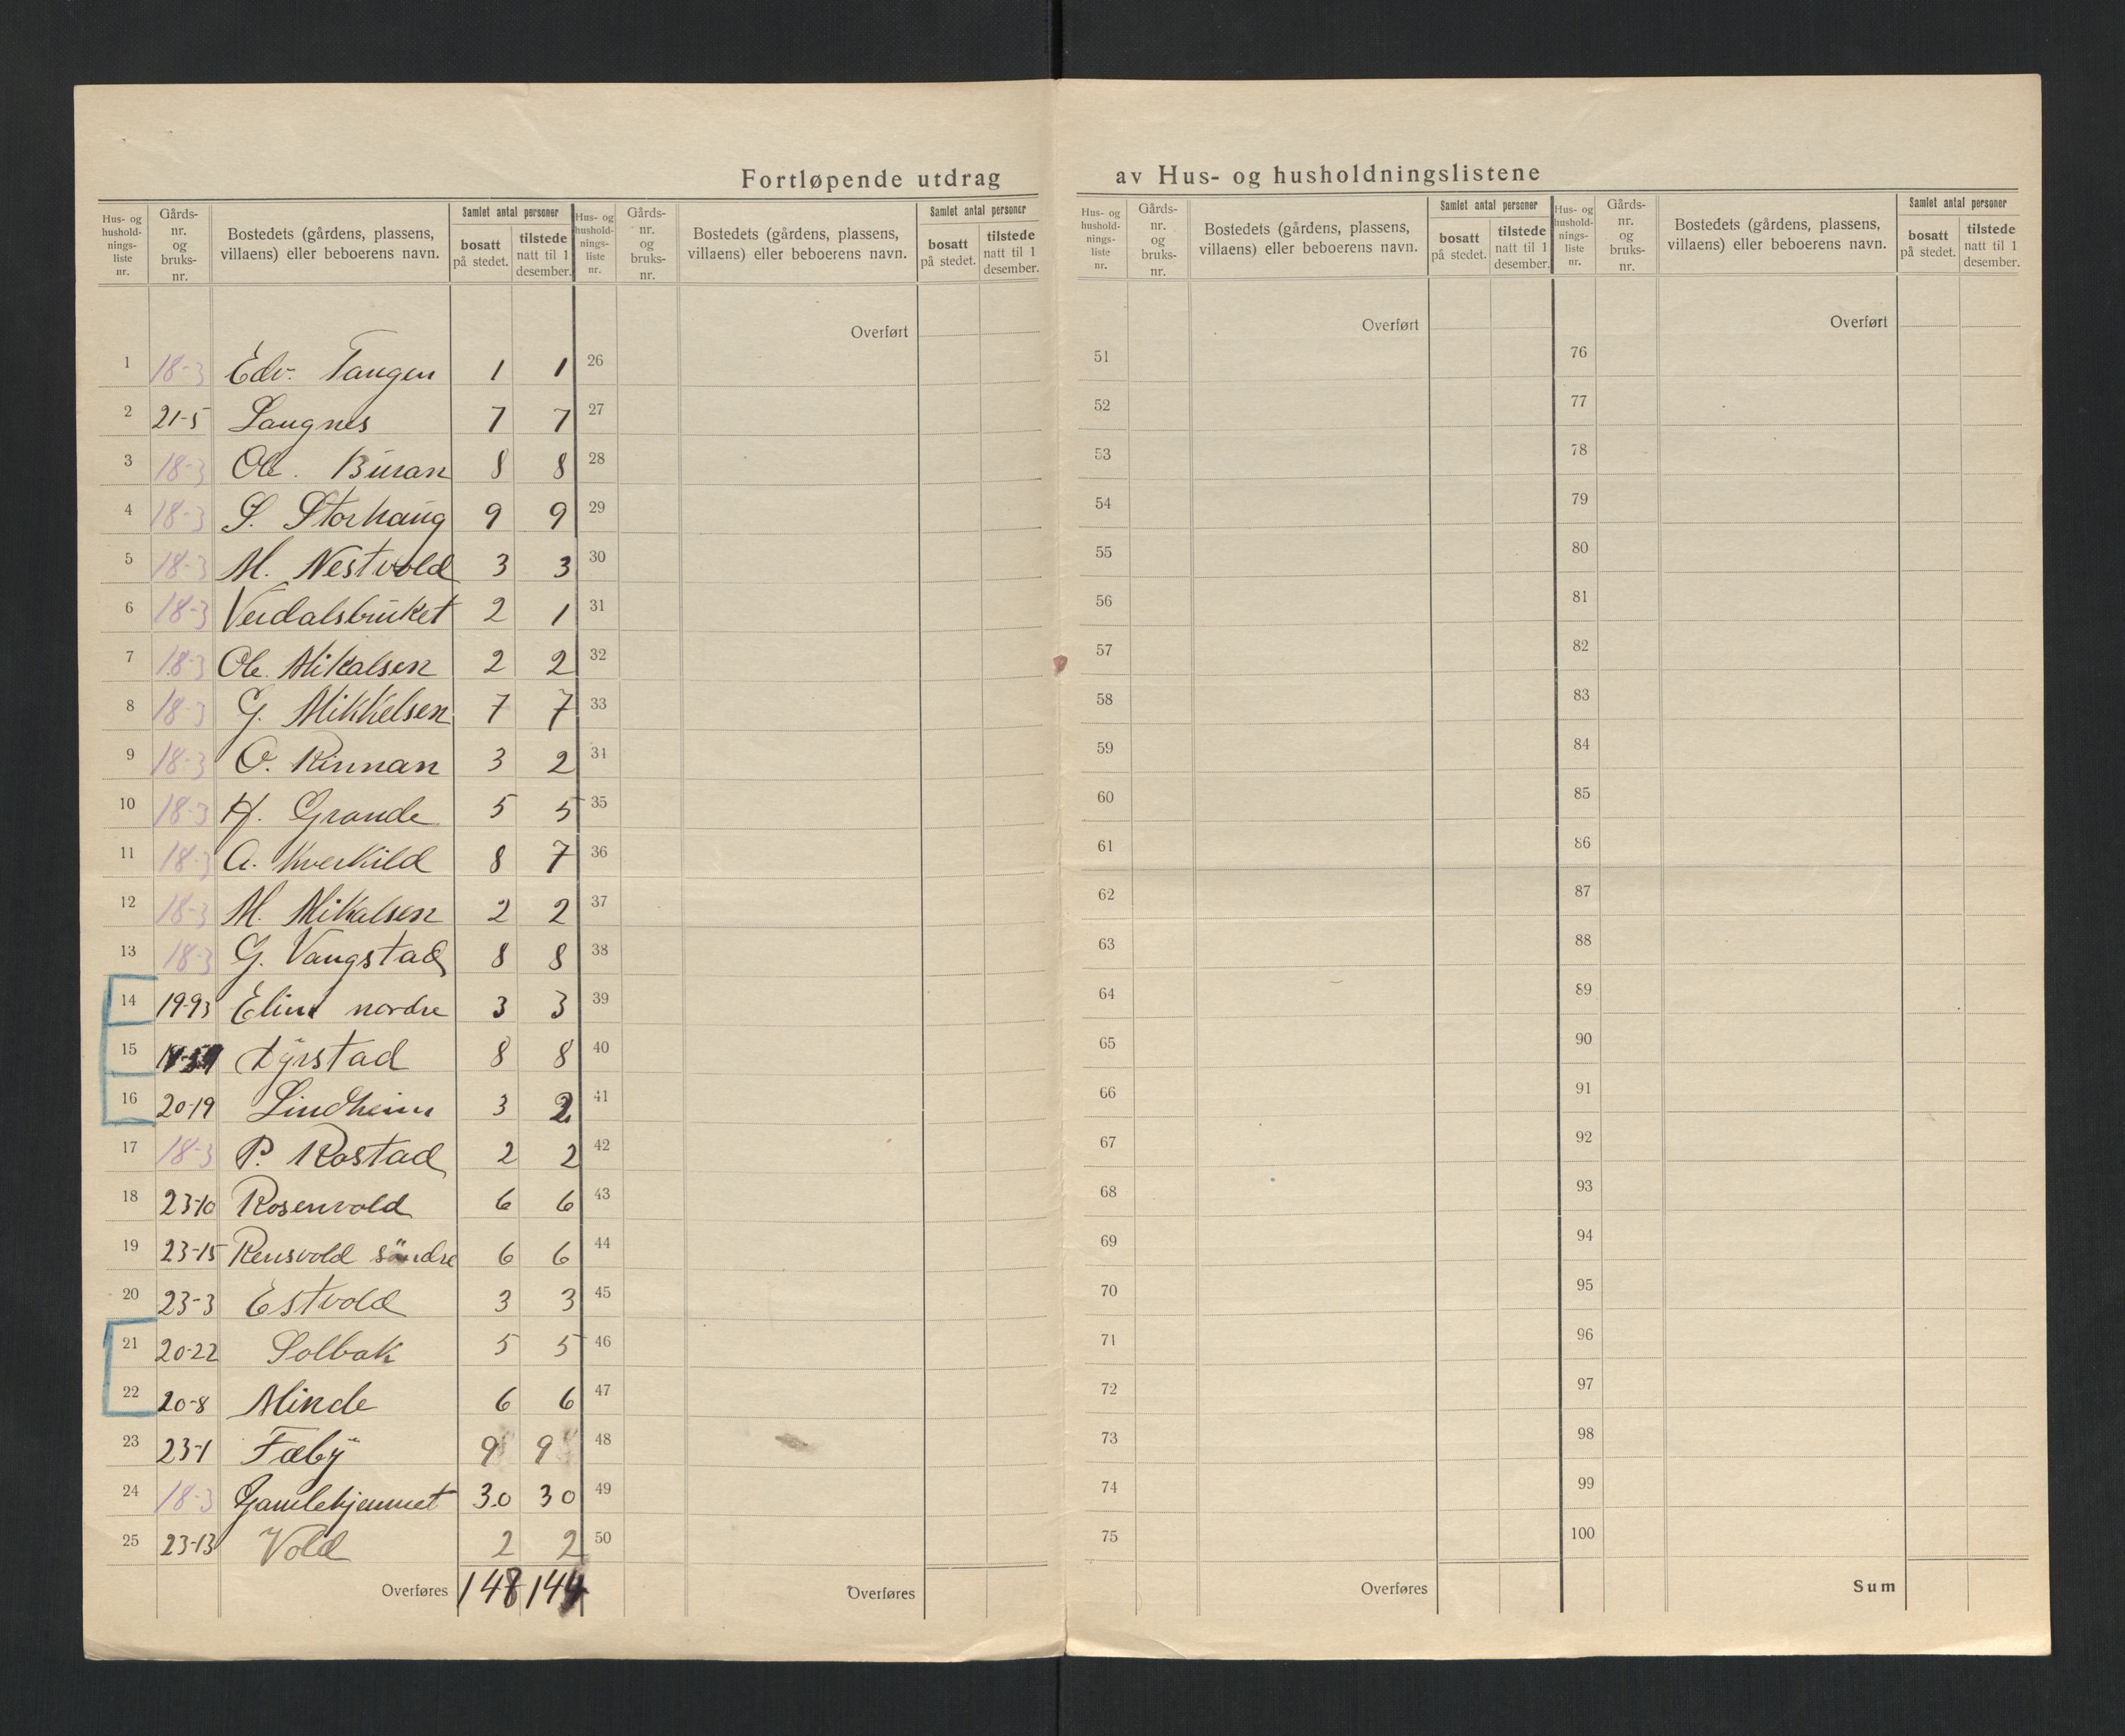 Fortløpende utdrag av Hus- og husholdningslistene
Hus- og hushold-nings-liste nr. Gårds-nr. og bruks-nr. Bostedets (gårdens, plassens, villaens) eller beboerens navn. Samlet antal personer bosatt på stedet. tilstede natt til 1 desember.
Overført
1 18-3 Edv. Tangen 1 1
2 21-5 Langnes 7 7
3 18-3 Ole. Buran 8 8
4 18-3 S. Storhaug 9 9
5 18-3 M. Nestvold 3 3
6 18-3 Verdalsbruket 2 1
7 18-3 Ole. Mikalsen 2 2
8 18-3 G. Mikkelsen 7 7
9 18-3 O. Rinnan 3 2
10 18-3 H. Grande 5 5
11 18-3 A. Kverkild 8 7
12 18-3 M. Mikalsen 2 2
13 18-3 G. Vangstad 8 8
14 19-93 Elim nordre 3 3
15 Lyrstad 8 8
16 20-19 Lindheim 3 2
17 18-3 P. Rostad 2 2
18 23-10 Rosenvold 6 6
19 23-15 Rensvold söndre 6 6
20 23-3 Estvold 3 3
21 20-22 Solbak 5 5
22 20-8 Minde 6 6
23 23-1 Fæby 9 9
24 18-3 Gamlehjemmet 30 30
25 23-13 Vold 2 2
Overføres 148 144
Hus- og hushold-nings-liste nr. Gårds-nr. og bruks-nr. Bostedets (gårdens, plassens, villaens) eller beboerens navn. Samlet antal personer bosatt på stedet. tilstede natt til 1 desember.
Overført
26
27
28
29
30
31
32
33
34
35
36
37
38
39
40
41
42
43
44
45
46
47
48
49
50
Overføres
Hus- og hushold-nings-liste nr. Gårds-nr. og bruks-nr. Bostedets (gårdens, plassens, villaens) eller beboerens navn. Samlet antal personer bosatt på stedet. tilstede natt til 1 desember.
Overført
51
52
53
54
55
56
57
58
59
60
61
62
63
64
65
66
67
68
69
70
71
72
73
74
75
Overføres
Hus- og hushold-nings-liste nr. Gårds-nr. og bruks-nr. Bostedets (gårdens, plassens, villaens) eller beboerens navn. Samlet antal personer bosatt på stedet. tilstede natt til 1 desember.
Overført
76
77
78
79
80
81
82
83
84
85
86
87
88
89
90
91
92
93
94
95
96
97
98
99
100
Sum